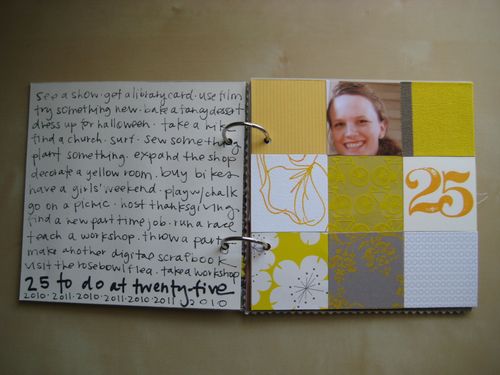 see a show · get a library card · use film
try something new · bake a fancy dessert
dress up for halloween · take a hike
find a church · surf · sew something
plant something · expand the shop
decorate a yellow room · buy bikes
have a girls' weekend · play w/ chalk
go on a picnic · host thanksgiving
find a new part time job · run a race
teach a workshop · throw a party
make another digital scrapbook
visit the rosebowl flea · take a workshop
25 to do at twenty-five
2010 · 2011 · 2010 · 2011 · 2010 · 2011 · 2010
25